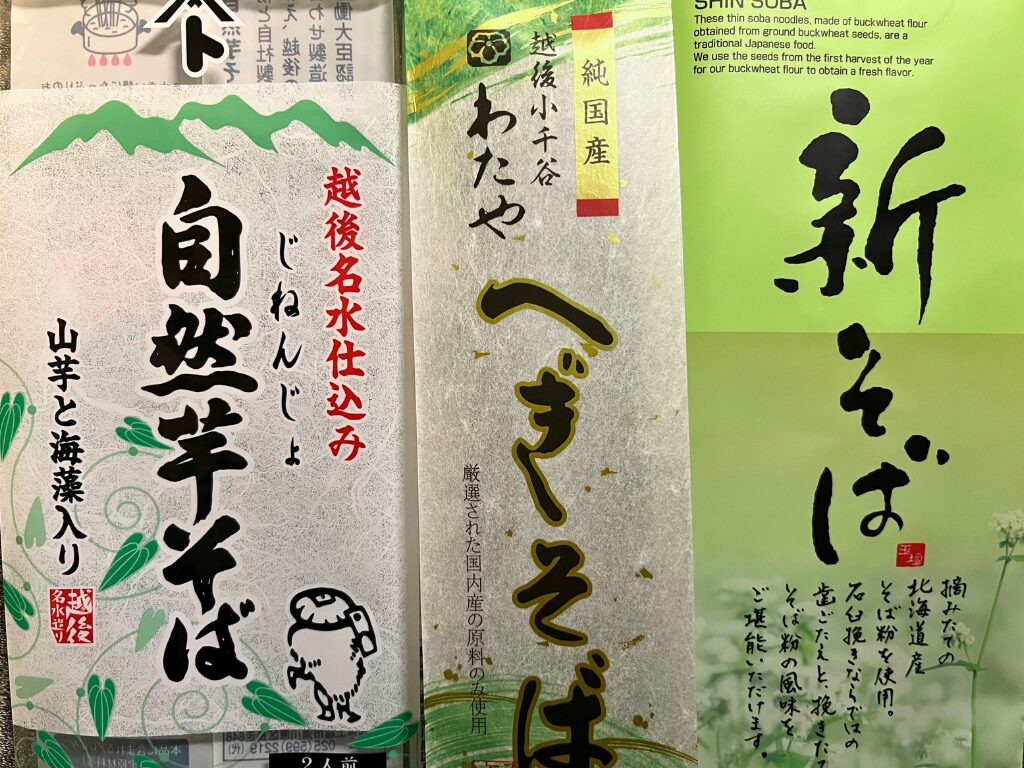 働大臣認
わせ製造
え、越後の
と自社製
自然芋そ
越後名水仕込み
じねんじょ
自然芋そば
山芋と海藻入り
越後
名水造り
025(599)2219(代)
2人前
純国産
越後小千谷
わたや
へぎそば
厳選された国内産の原料のみ使用
SHIN SOBA
These thin soba noodles, made of buckwheat flour
obtained from ground buckwheat seeds, are a
traditional Japanese food.
We use the seeds from the first harvest of the year
for our buckwheat flour to obtain a fresh flavor.
新そば
摘みたての
北海道産
そば粉を使用。
石臼挽きならではの
歯ごたえと、挽きたて
そば粉の風味を
ご堪能いただけます。